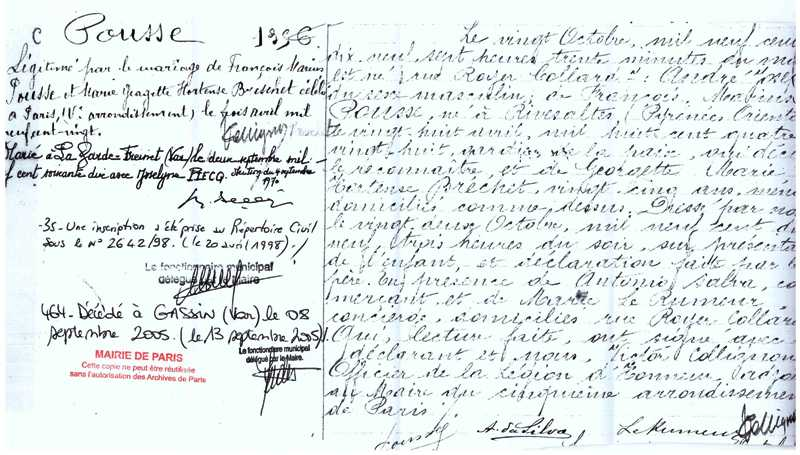 C Pousse 1996
Légitimé par le mariage de François Marius
Pousse et Marie Georgette Hortense Brechet célébré
à Paris, (V. arrondissement) le trois avril mil
neuf cent vingt.
Marié à La Garde-Freinet (Var) le deux septembre mil
f cent soixante dix avec Joselyne FLECQ. 4 septembre
1970
-35- Une inscription a été prise au Répertoire Civil
sous le N° 2642/98. (le 20 avril 1998)./
Le fonctionnaire municipal
délégué par le Maire
464- Décédé à GASSIN (Var) le 08
septembre 2005. (le 13 septembre 2005)/.
Le fonctionnaire municipal
délégué par le Maire.
MAIRIE DE PARIS
Cette copie ne peut être réutilisée
sans l'autorisation des Archives de Paris
Le vingt Octobre, mil neuf cent
dix neuf, sept heures trente minutes du
est né, rue Royer Collard : André
du sexe masculin, de François, Marius
POUSSE, né à Rivesaltes (Pyrénées Orient
le vingt huit avril, mil huit cent quatre
vingt huit, gardien de la paix qui déc
le reconnaître, et de Georgette Marie
Hortense Bréchet, vingt cinq ans, mêm
domiciliés comme dessus. Dressé par no
le vingt deux Octobre, mil neuf cent di
neuf, trois heures du soir, sur présenta
de l'enfant, et déclaration faite par le
père. En présence de Antonio co
merçant et de Marie Le Rumeur
concierge, domiciliés rue Royer Collard
Qui, lecture faite, ont signé avec
déclarant et nous, Victor Collignon
Officier de la Légion d'Honneur, adjoi
au Maire du cinquième arrondissemen
de Paris
A. da Silva Le Rumeur